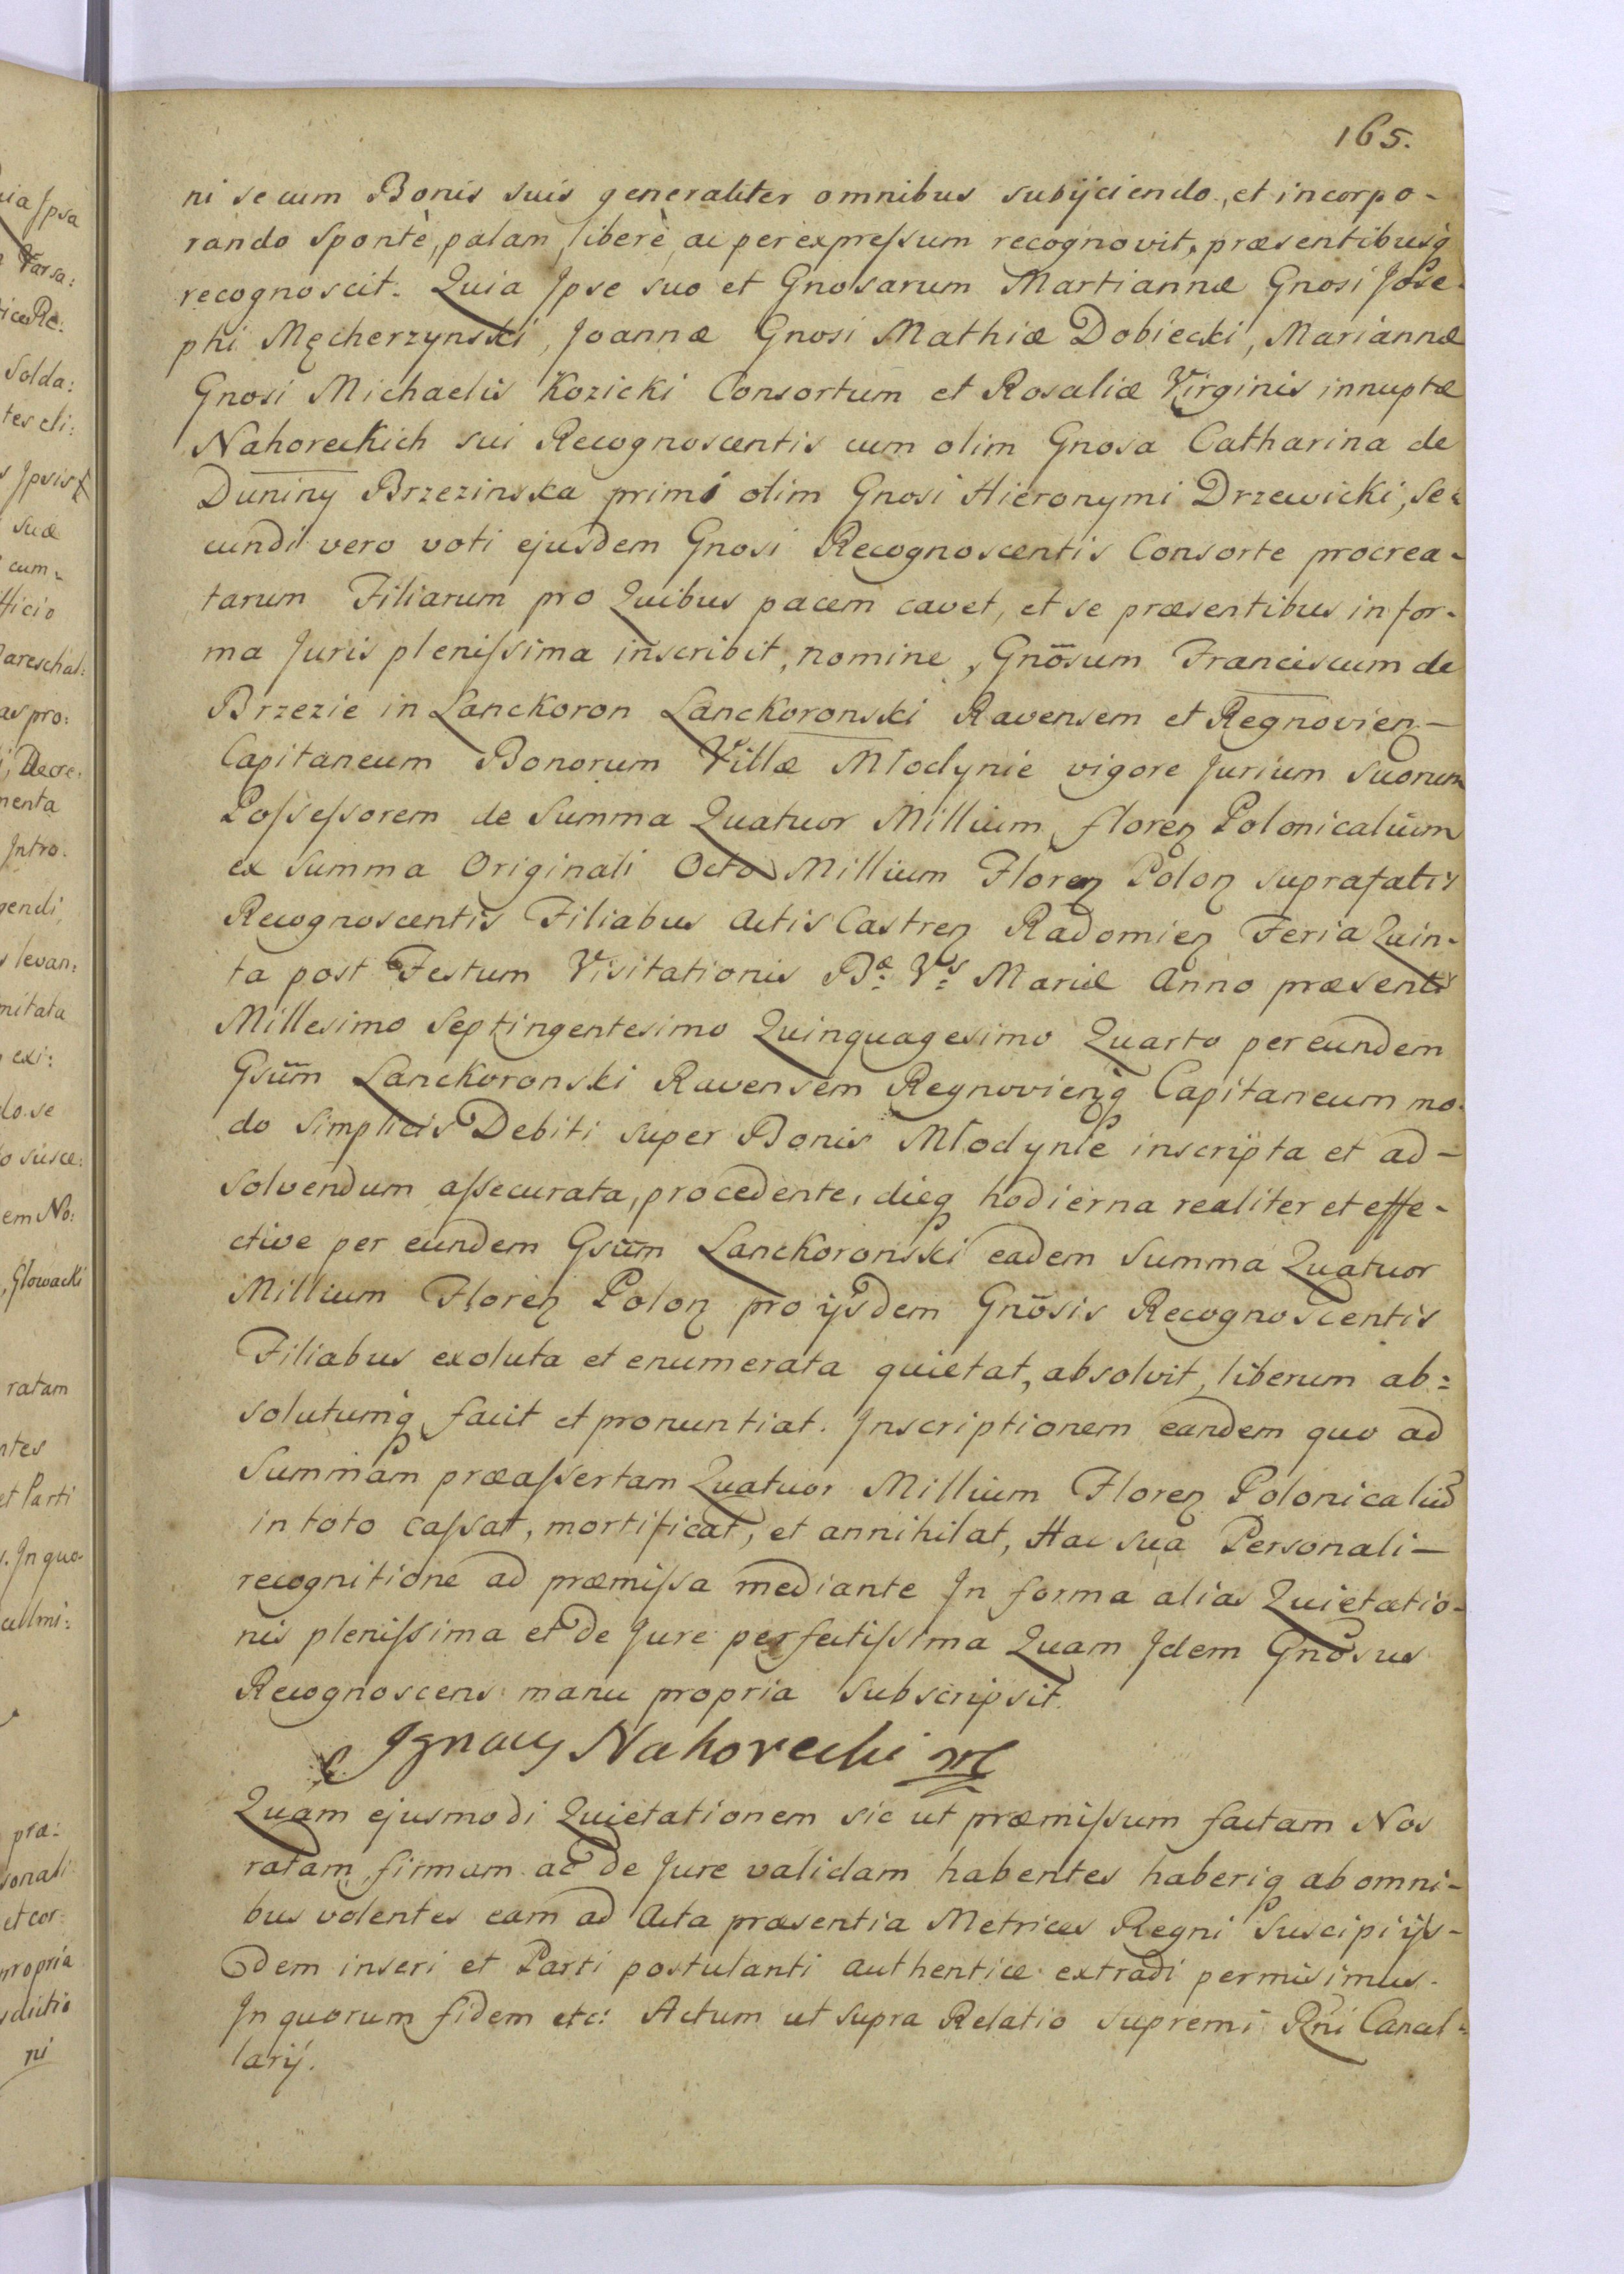 165.
ni se cum Bonis suis generaliter omnibus subijciendo, et incorpo-
rando Spontè, palam, liberè, ac per expreſsum recognovit, præsentibusq
recognoscit. Quia Ipse suo et Gnosarum Martiannæ Gnosi Jose-
phi Męcherzynski, Joannæ Gnosi Mathiæ Dobiecki, Mariannæ
Gnosi Michaelis Kozicki Consortum et Rosaliæ Virginis innuptæ
Nahoreckich sui Recognoscentis cum olim Gnosa Catharina de
Duniny Brzezinska primi olim Gnosi Hieronymi Drzewicki, se-
cundi vero voti ejusdem Gnosi Recognoscentis Consorte procrea-
tarum Filiarum pro Quibus pacem cavet, et se præsentibus in for-
ma Juris pleniſsima inscribit, nomine, Gnōsum Franciscum de
Brzezie in Lanckoron Lanckoronski Ravensem et Regnovien̄
Capitaneum Bonorum Villæ Młodynie vigore Jurium Suorum
Poſseſsorem de Summa Quatuor Millium floren̄ Polonicalium
ex Summa Originali Octo Millium Floren̄ Polon̄ suprafatis
Recognoscentis Filiabus Actis Castren̄ Radomien̄ Feria Quin-
ta post Festum Visitationis Bæ: Vs: Mariæ Anno præsenti
Millesimo Septingentesimo Quinquagesimo Quarto per eundem
Gsūm Lanckoronski Ravensem Regnovien̄q Capitaneum mo-
do Simplicis Debiti super Bonis Młodynie inscripta et ad-
solvendum aſsecurata, procedente, dieq hodierna realiter et effe-
ctive per eundem Gsūm Lanckoronski eadem Summa Quatuor
Millium Floren̄ Polon̄ pro ijsdem Gnōsis Recognoscentis
Filiabus exoluta et enumerata quietat, absolvit, liberum ab=
solutumq̄ facit et pronuntiat. Inscriptionem eandem quo ad
Summam præaſsertam Quatuor Millium Floren̄ Polonicaliu͂
in toto caſsat, mortificat, et annihilat, Hac sua Personali-
recognitione ad præmiſsa mediante In forma alias Quietatio-
nis pleniſsima et de Jure perfectiſsima Quam Idem Gnōsus
Recognoscens manu propria Subscripsit.
Ignacy Nahorecki mp
Quam ejusmodi Quietationem sic ut præmiſsum factam Nos
ratam, firmam ac de Jure validam habentes haberiq ab omni-
bus volentes eam ad Acta præsentia Metrices Regni Suscipi ijs-
dem inseri et Parti postulanti authentice extradi permisimus.
In quorum fidem etc: Actum ut supra Relatio Supremi Rni Cancel=
larij.